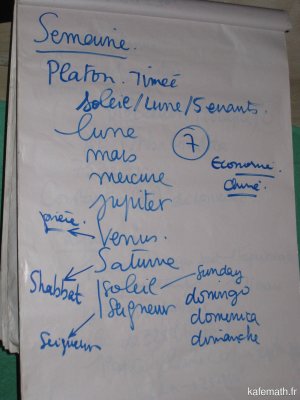 Semaine.
Platon. Timée
Soleil/Lune/5 errants.
lune
7
mars
Economie
mercure
Chine.
Jupiter
prière.
Venus.
Saturne
Shabbat
Soleil
Sunday
Seigneur
domingo
domenica
Seigneur
dimanche
kafemath.fr